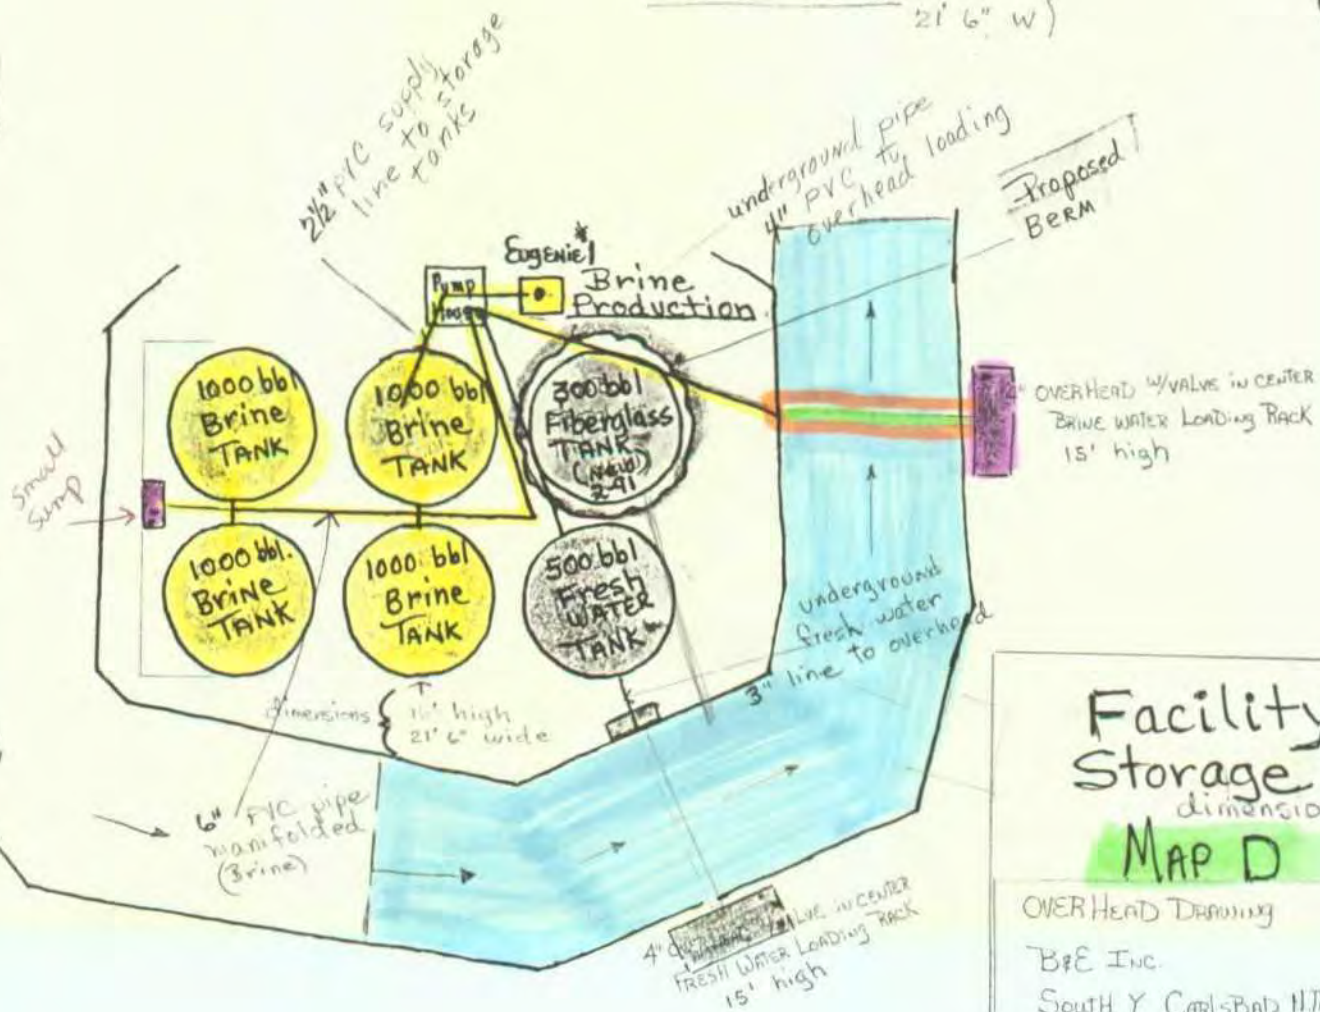 21' 6" W)
2½" PVC supply
line to storage
tanks
underground pipe
4" PVC to
overhead loading
Proposed
BERM
EUGENIE #1
Brine
Production
Pump
House
1000 bbl
Brine
TANK
1000 bbl
Brine
TANK
300 bbl
Fiberglass
TANK
(NEW)
2-91
OVERHEAD W/VALVE IN CENTER
BRINE WATER LOADING RACK
15' high
small
sump
1000 bbl.
BRINE
TANK
1000 bbl
Brine
TANK
500 bbl
Fresh
WATER
TANK
underground
fresh water
3" line to overhead
dimensions
high
21' 6" wide
6" PVC pipe
manifolded
(Brine)
4" VALVE IN CENTER
FRESH WATER LOADING RACK
15' high
Facility
Storage
dimensio
MAP D
OVERHEAD DRAWING
B&E INC.
SOUTH Y CARLSBAD N.M